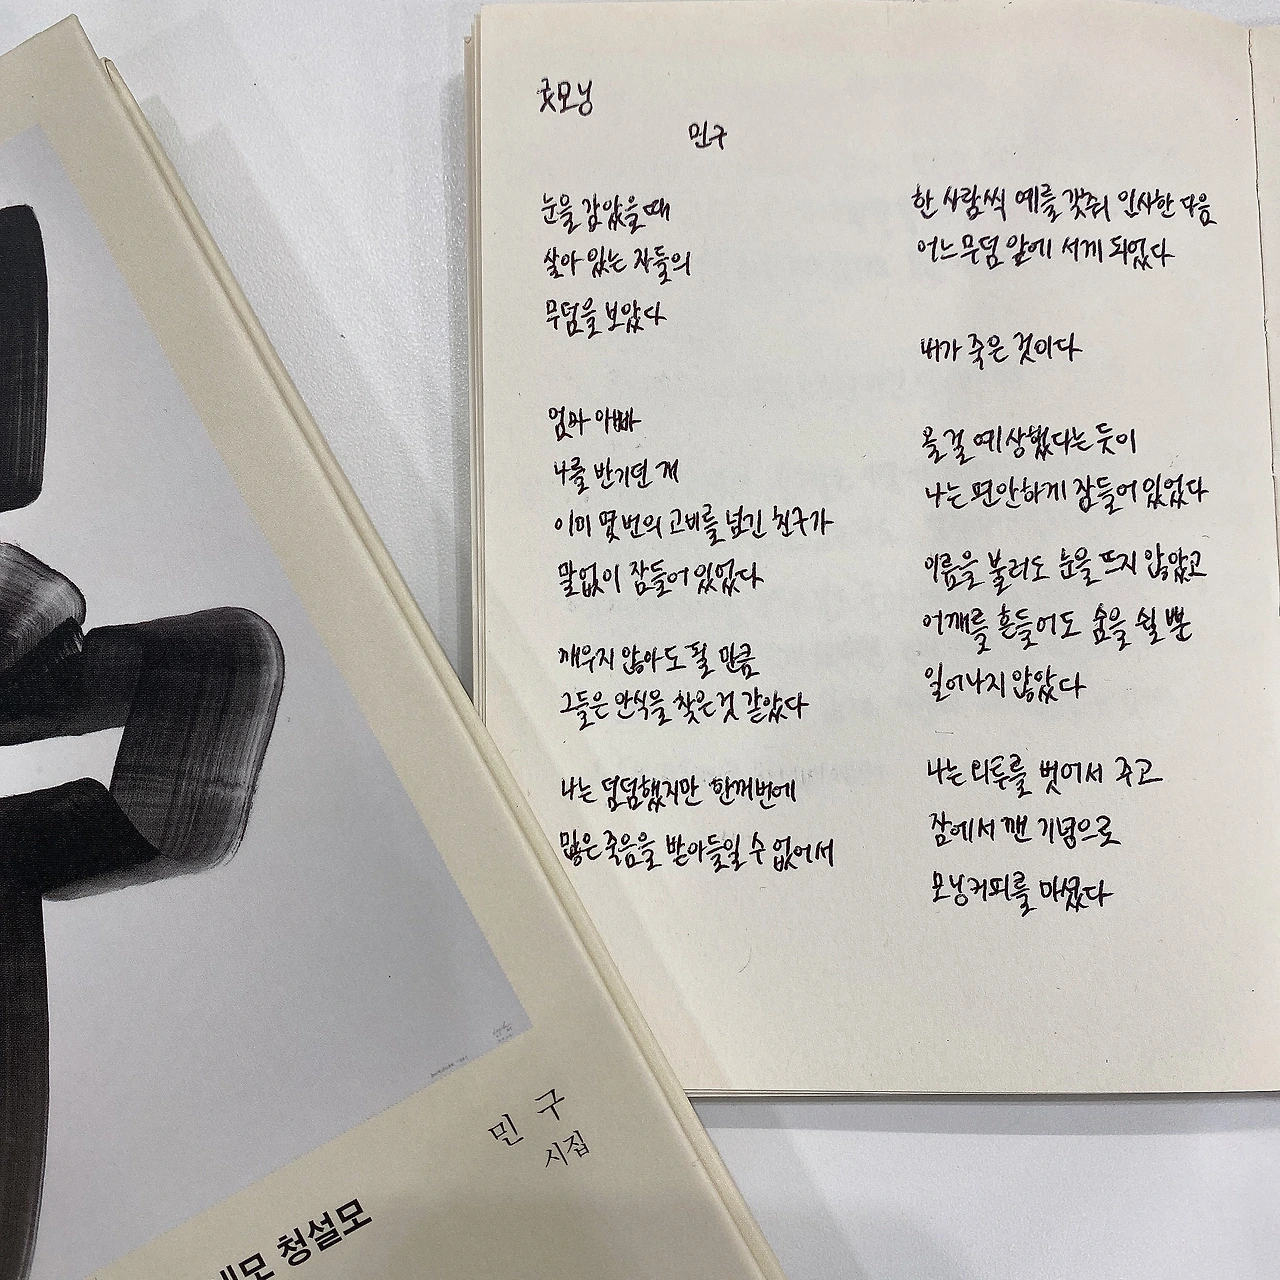 굿모닝
민구
눈을 감았을 때
살아 있는 자들의
무덤을 보았다
엄마 아빠
나를 반기던 개
이미 몇 번의 고비를 넘긴 친구가
말없이 잠들어 있었다
깨우지 않아도 될 만큼
그들은 안식을 찾은 것 같았다
나는 덤덤했지만 한꺼번에
많은 죽음을 받아들일 수 없어서
한 사람씩 예를 갖춰 인사한 다음
어느 무덤 앞에 서게 되었다
내가 죽은 것이다
올 걸 예상했다는 듯이
나는 편안하게 잠들어 있었다
이름을 불러도 눈을 뜨지 않았고
어깨를 흔들어도 숨을 쉴 뿐
일어나지 않았다
나는 외투를 벗어서 주고
잠에서 깬 기념으로
모닝커피를 마셨다
민구
시집
세모 청설모